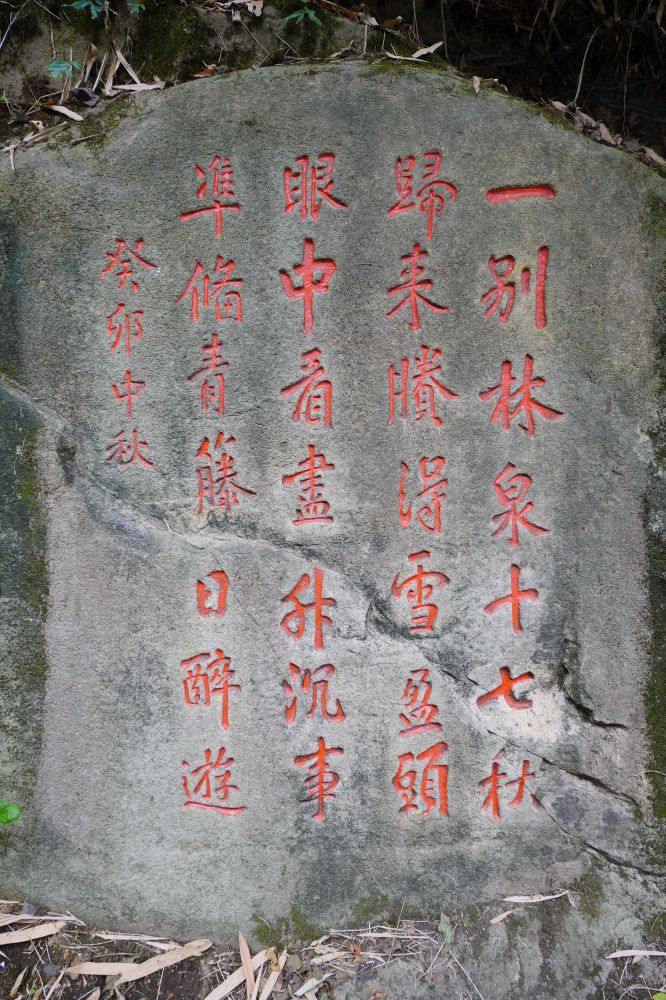 一别林泉十七秋
歸来賸得雪盈頭
眼中看盡升沉事
準俻青籐日醉遊
癸卯中秋